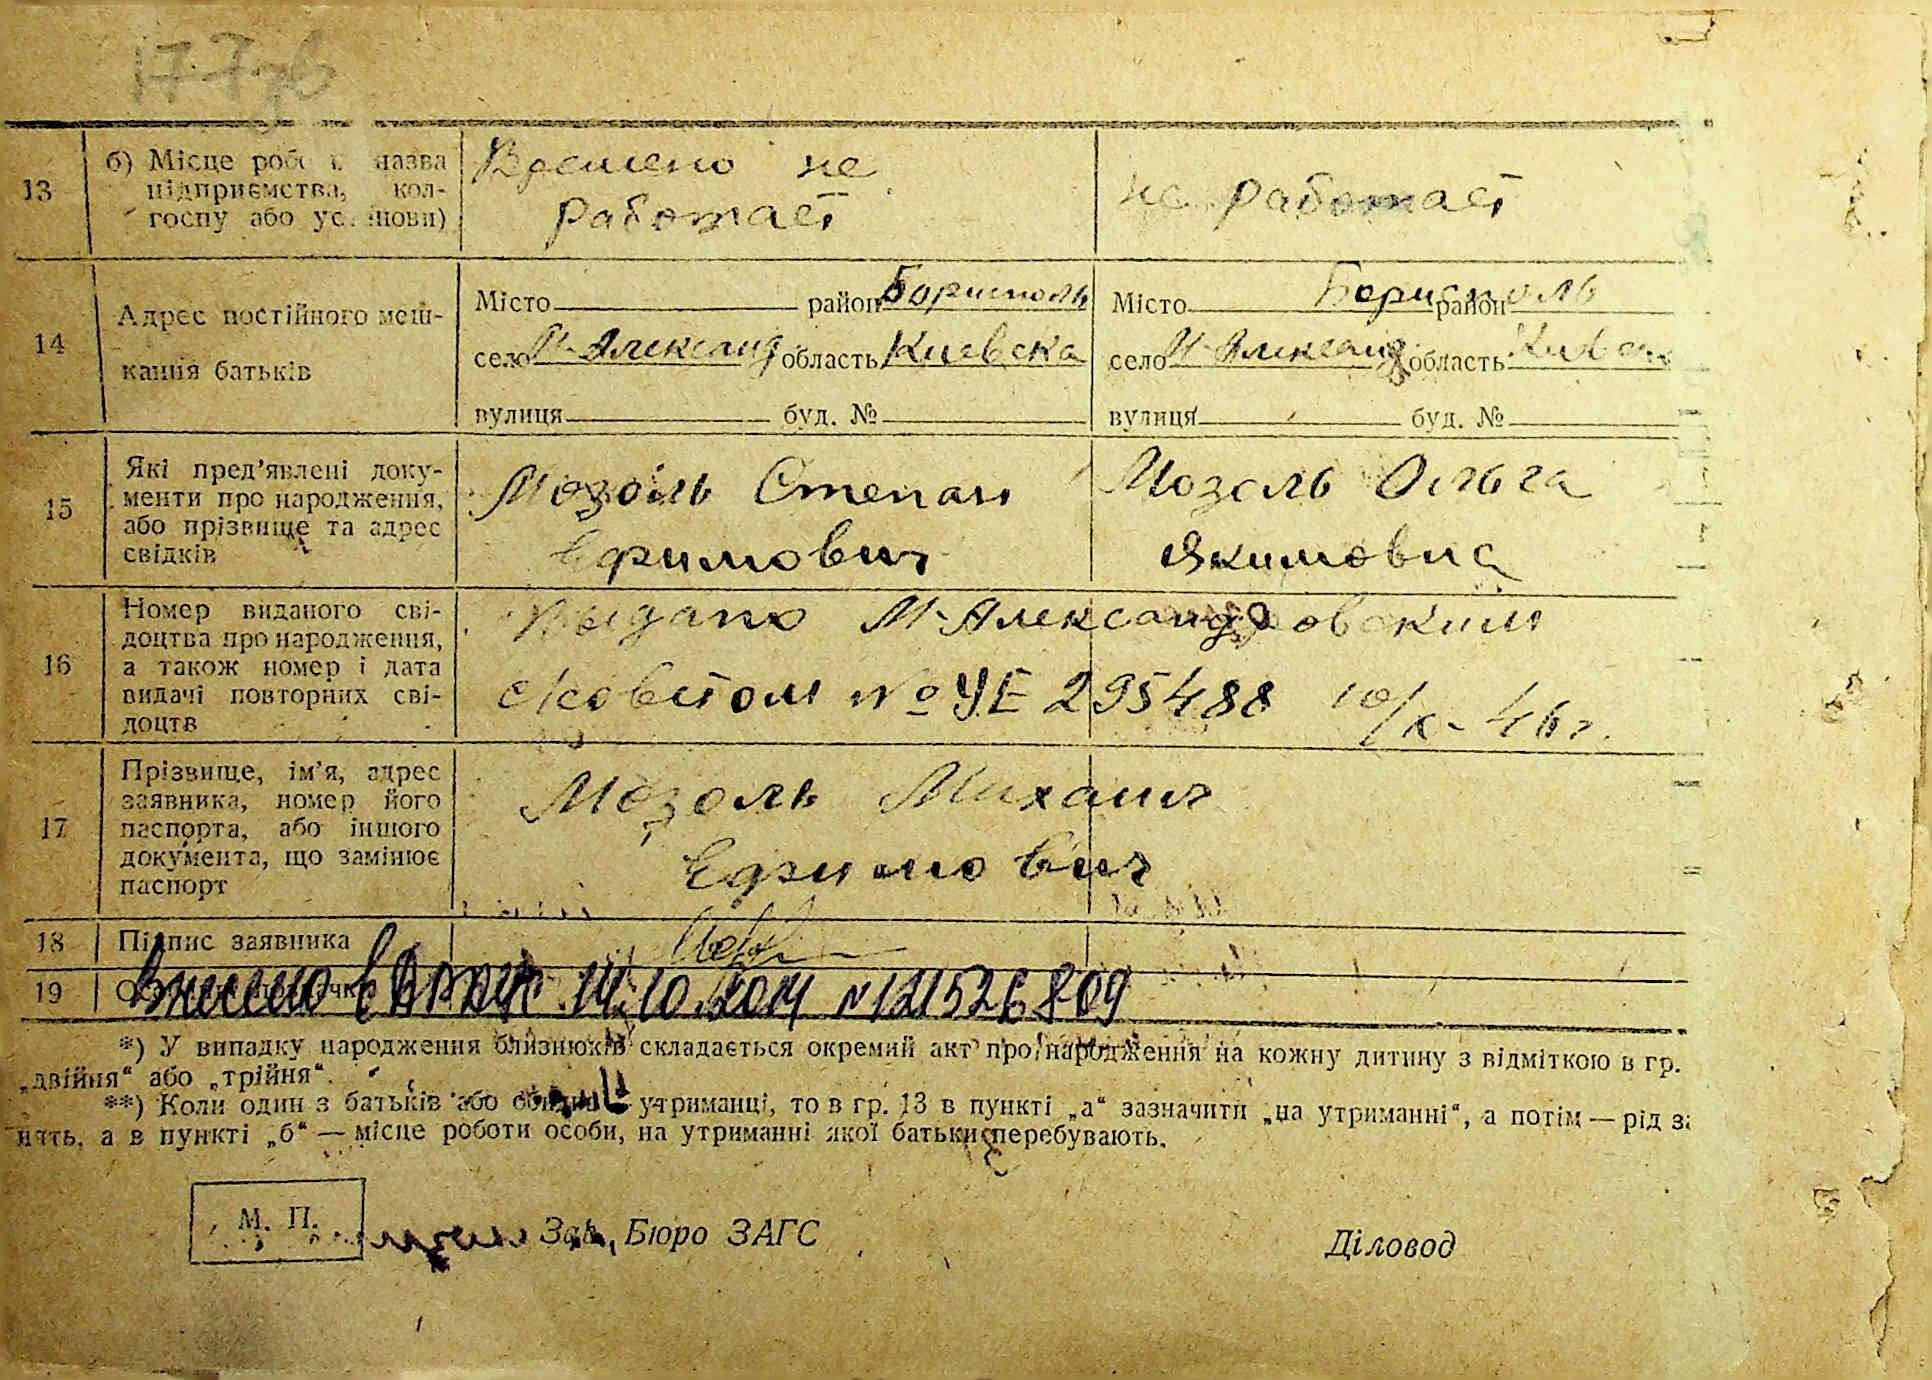 13
б) Місце роб назва
підприємства, кол-
госпу або ус нови)
Времено не
работает
не работает
14
Адрес постійного меш-
кання батьків
Місто район Борисполь
село М-Александ область Киевска
вулиця буд. №
Місто район Борисполь
село М-Александ область Киевск
вулиця буд. №
15
Які пред’явлені доку-
менти про народження,
або прізвище та адрес
свідків
Мозоль Степан
Ефимович
Мозоль Ольга
Якимовна
16
Номер виданого сві-
доцтва про народження,
а також номер і дата
видачі повторних сві-
доцтв
Выдано М-Александровским
с/советом № УЕ 295488 10/X-46г.
17
Прізвище, ім’я, адрес
заявника, номер його
паспорта, або іншого
документа, що замінює
паспорт
Мозоль Михаил
Ефимович
18
Підпис заявника
19
Внесено в ДРАЦС 14.10.2014 №121526809
*) У випадку народження близнюків складається окремий акт про народження на кожну дитину з відміткою в гр.
„двійня“ або „трійня“.
**) Коли один з батьків або утриманці, то в гр. 13 в пункті „а“ зазначити „на утриманні“, а потім — рід за
нять, а в пункті „б“ — місце роботи особи, на утриманні якої батьки перебувають.
М. П.
Зав. Бюро ЗАГС
Діловод